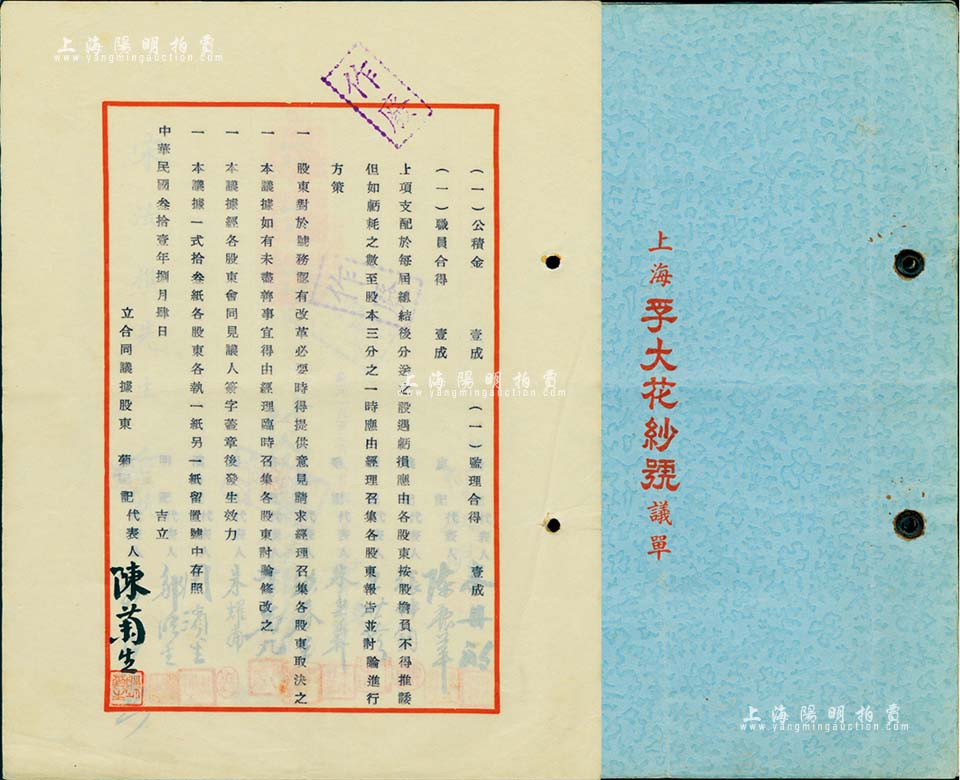 上海孚大花紗號議單
(一)公積金 壹成 (一)監理合得 壹成
(一)職員合得 壹成
上項支配於每屆總結後分送之設遇虧損應由各股東按股擔負不得推諉
但如虧耗之數至股本三分之一時應由經理召集各股東報告並討論進行
方策
一 股東對於號務認有改革必要時得提供意見請求經理召集各股東取決之
一 本議據如有未盡善事宜得由經理臨時召集各股東討論修改之
一 本議據經各股東會同見議人簽字蓋章後發生效力
一 本議據一式拾叁紙各股東各執一紙另一紙留置號中存照
中華民國叁拾壹年捌月肆日 吉立
立合同議據股東 菊記代表人 陳菊生
作廢
作廢
上海陽明拍賣
www.yangmingauction.com
上海陽明拍賣
www.yangmingauction.com
上海陽明拍賣
www.yangmingauction.com